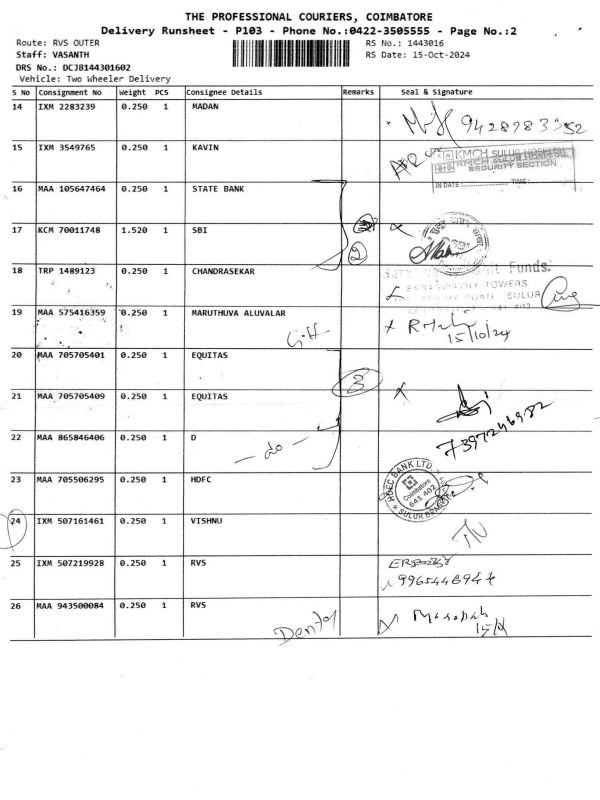 THE PROFESSIONAL COURIERS, COIMBATORE
Delivery Runsheet - P103 - Phone No.:0422-3505555 - Page No.:2
Route: RVS OUTER RS No.: 1443016
Staff: VASANTH RS Date: 15-Oct-2024
DRS No.: DCJB144301602
Vehicle: Two Wheeler Delivery
S No Consignment No Weight PCS Consignee Details Remarks Seal & Signature
14 IXM 2283239 0.250 1 MADAN
15 IXM 3549765 0.250 1 KAVIN
KMCH SULUR HOSPITAL
SECURITY SECTION
IN DATE: TIME:
16 MAA 105647464 0.250 1 STATE BANK
17 KCM 70011748 1.520 1 SBI
2
18 TRP 1489123 0.250 1 CHANDRASEKAR
Funds.
TOWERS
ROAD SULUR
19 MAA 575416359 0.250 1 MARUTHUVA ALUVALAR
15/10/24
20 MAA 705705401 0.250 1 EQUITAS
3
21 MAA 705705409 0.250 1 EQUITAS
22 MAA 865846406 0.250 1 D
- do -
7397246982
23 MAA 705506295 0.250 1 HDFC
BANK LTD.
Coimbatore
641 402
SULUR
24 IXM 507161461 0.250 1 VISHNU
25 IXM 507219928 0.250 1 RVS
26 MAA 943500084 0.250 1 RVS
Dental